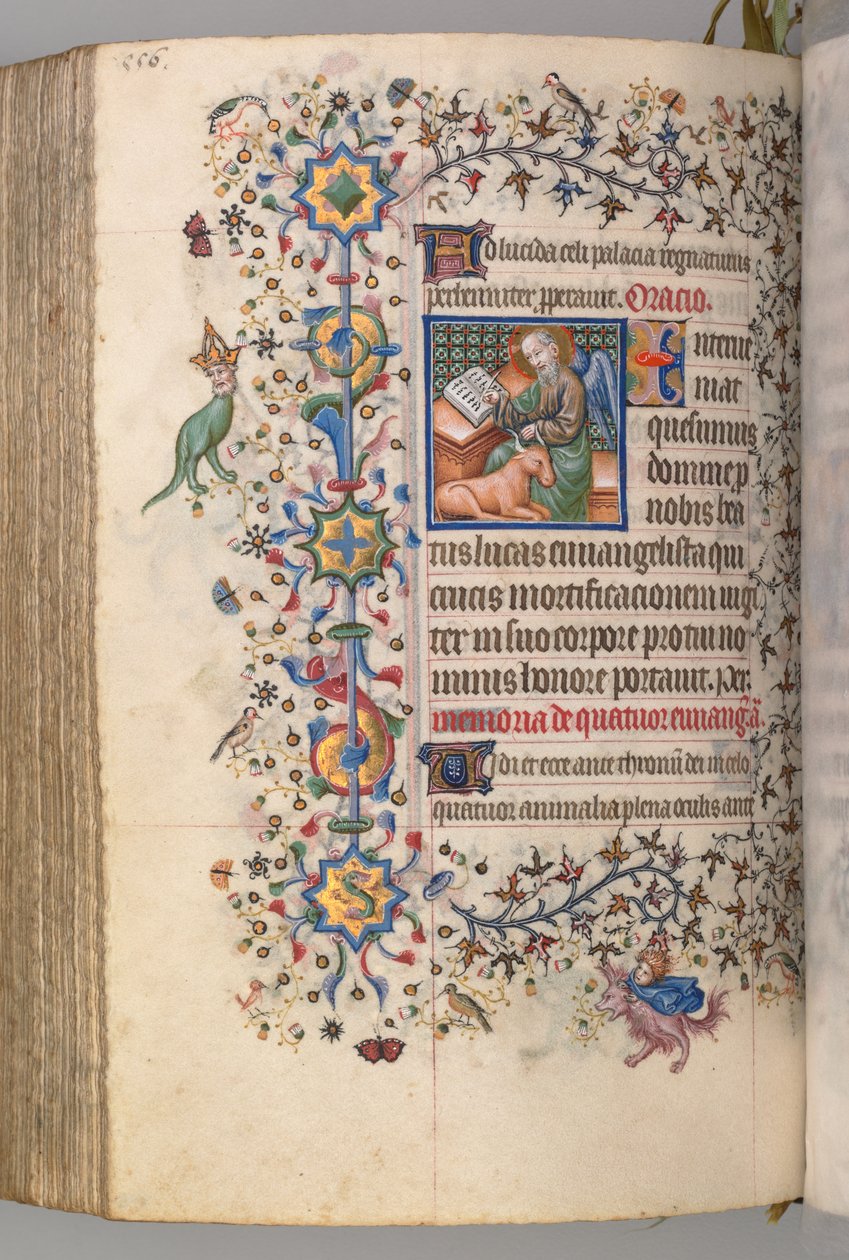 556.
Ad lucida celi palacia regnaturus
perhenniter pperauit. Oracio.
Interue
niat
quesumus
domine p
nobis bea
tus lucas euuangelista qui
crucis mortificacionem iugi
ter in suo corpore pro tui no
minis honore portauit. Per.
memoria de quatuor euuang̃.
Uidi et ecce ante thronũ dei in celo
quatuor animalia plena oculis ante